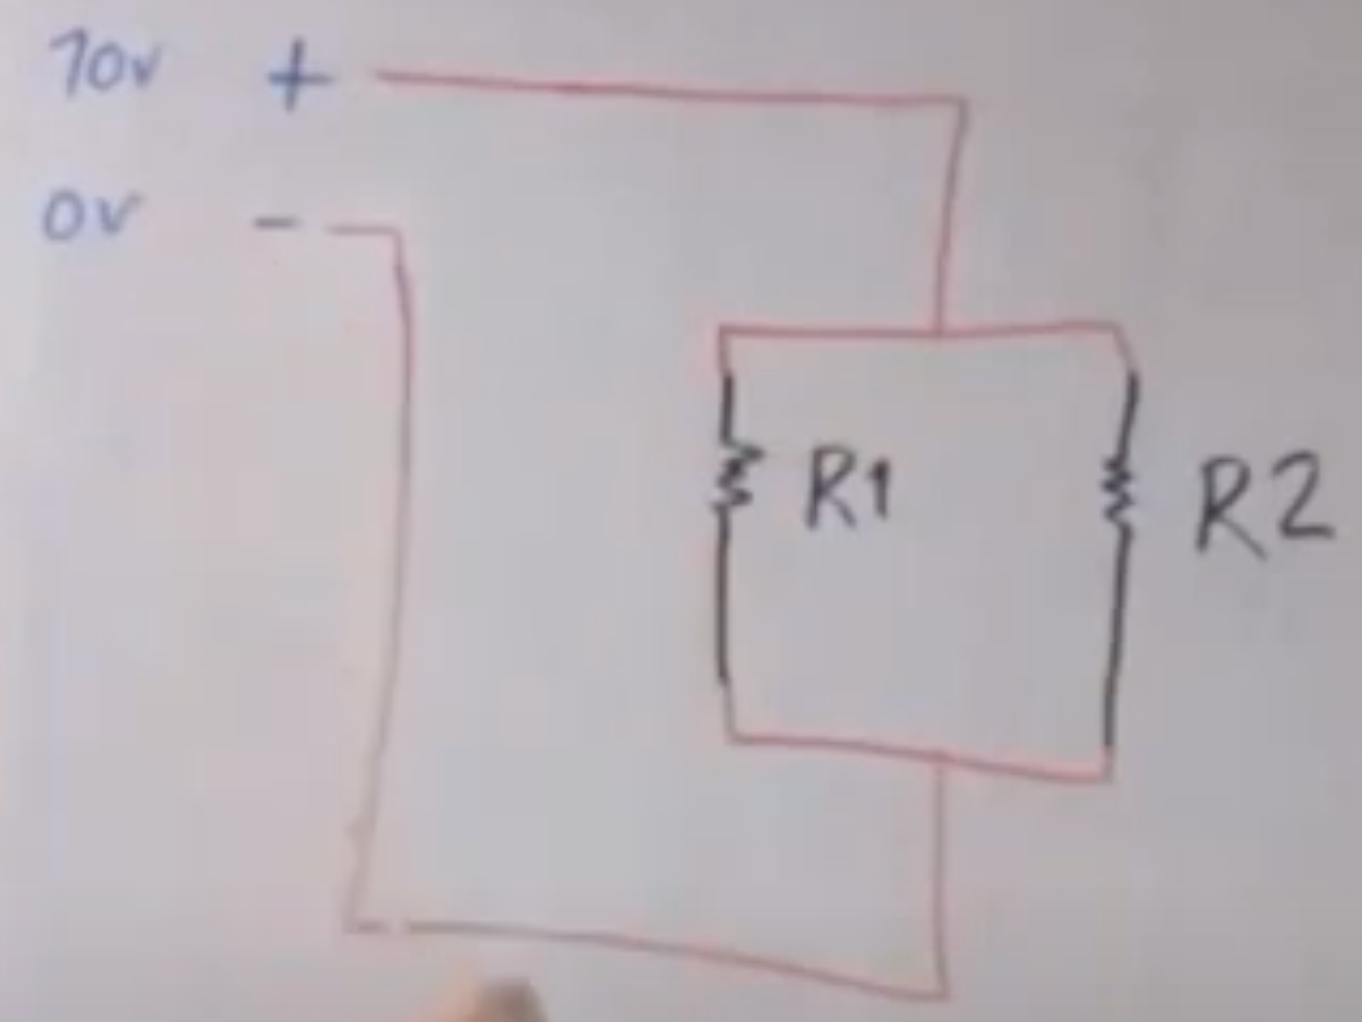 10v +
0v -
R1
R2